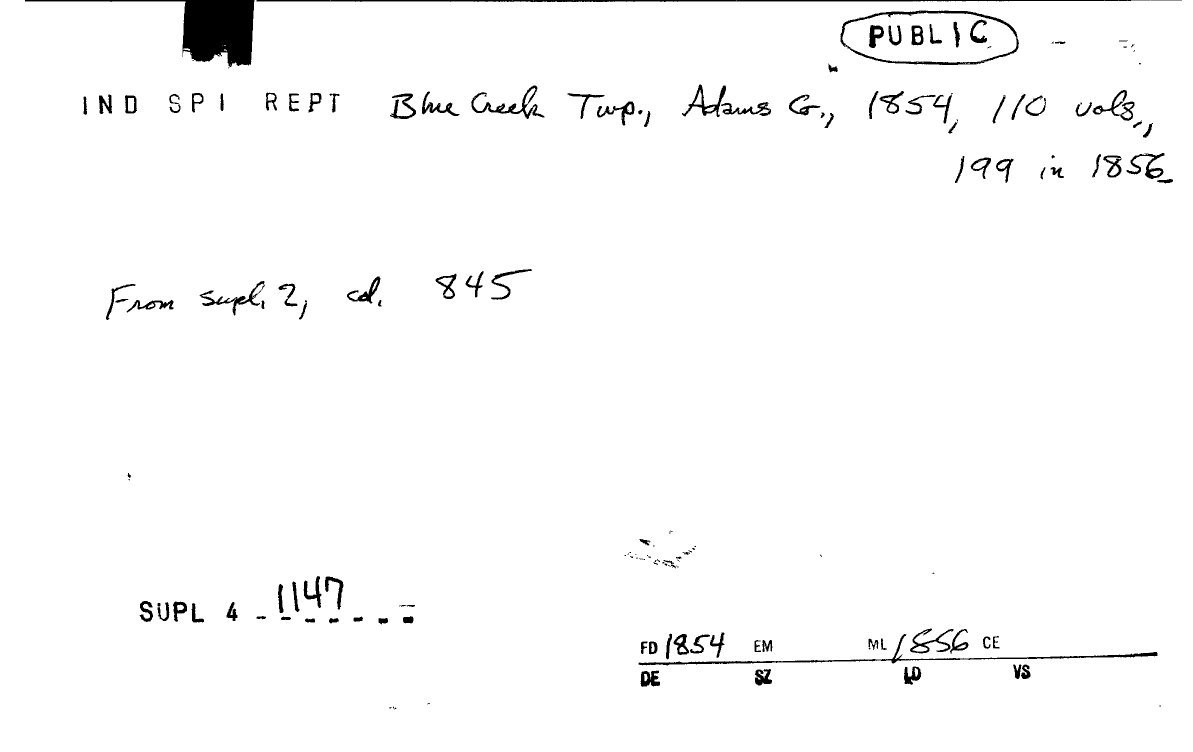 PUBLIC
IND SPI REPT Blue Creek Twp., Adams Co., 1854, 110 vols.,
199 in 1856
From supl. 2, col. 845
SUPL 4 - 1147
FD 1854 EM ML 1856 CE
DE SZ LD VS